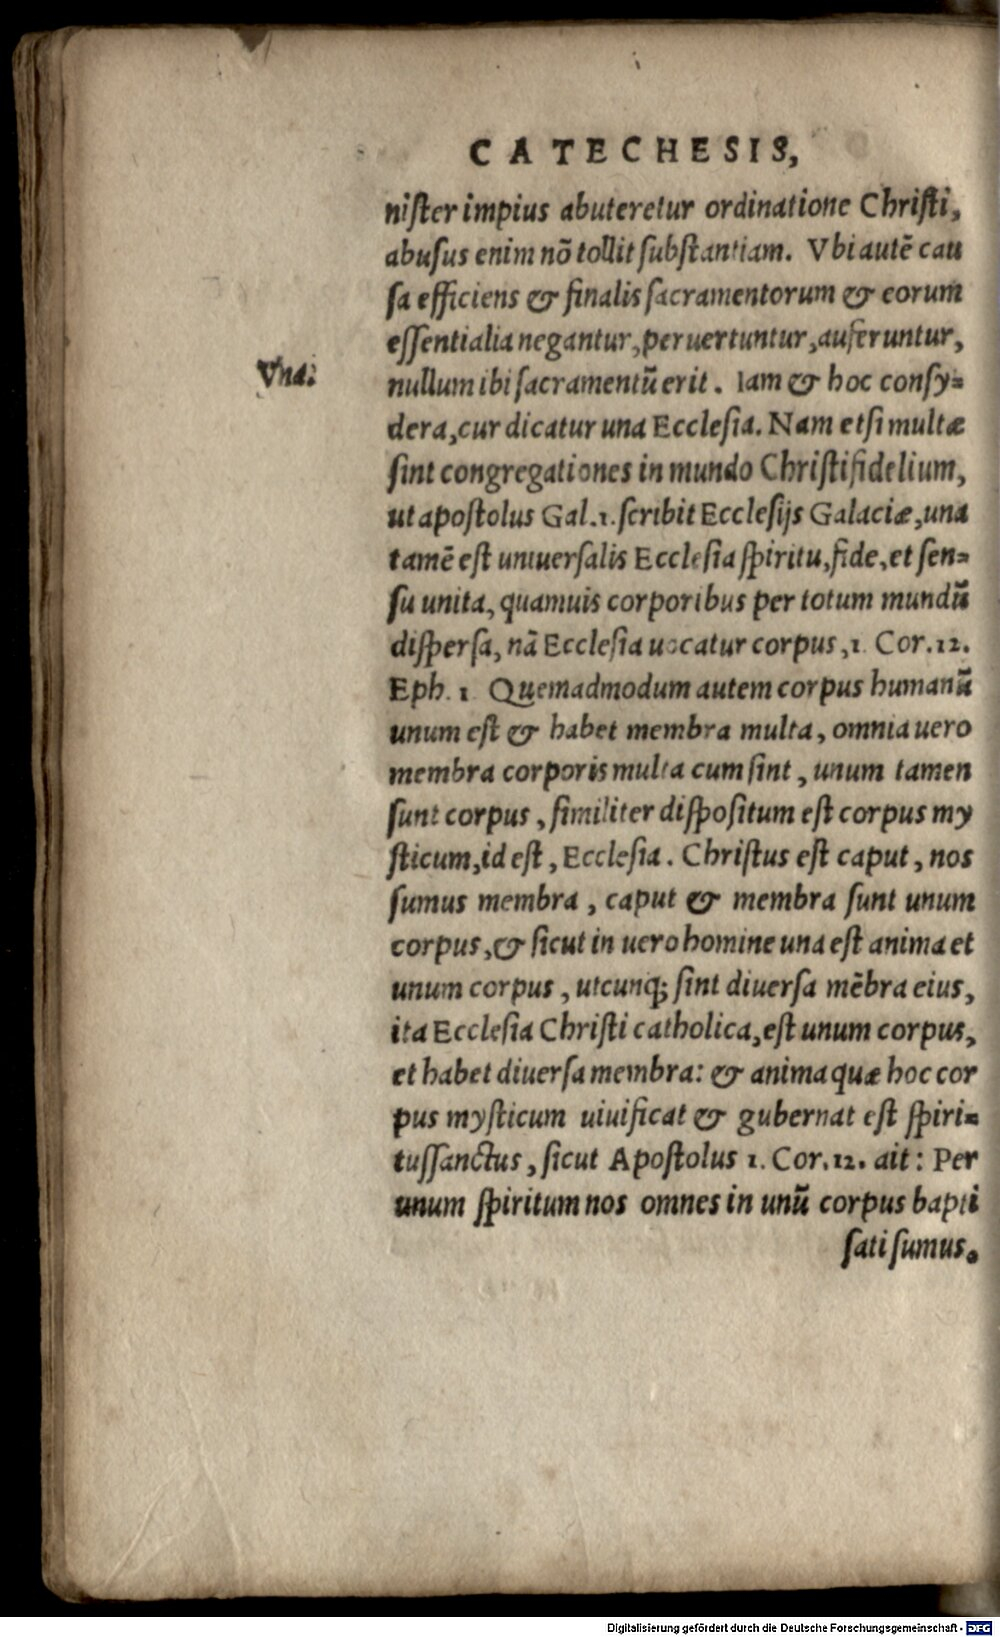 CATECHESIS,
niſter impius abuteretur ordinatione Chriſti,
abuſus enim nõ tollit ſubſtantiam. Vbi autẽ cau
ſa efficiens & finalis ſacramentorum & eorum
eſſentialia negantur, peruertuntur, auferuntur,
Vna.
nullum ibi ſacramentũ erit. Iam & hoc conſy=
dera, cur dicatur una Eccleſia. Nam etſi multæ
ſint congregationes in mundo Chriſti fidelium,
ut apoſtolus Gal. 1. ſcribit Eccleſijs Galaciæ, una
tamẽ eſt uniuerſalis Eccleſia ſpiritu, fide, et ſen=
ſu unita, quamuis corporibus per totum mundũ
diſperſa, nã Eccleſia uocatur corpus, 1. Cor. 12.
Eph. 1 Quemadmodum autem corpus humanũ
unum eſt & habet membra multa, omnia uero
membra corporis multa cum ſint, unum tamen
ſunt corpus, ſimiliter diſpoſitum eſt corpus my
ſticum, id eſt, Eccleſia. Chriſtus eſt caput, nos
ſumus membra, caput & membra ſunt unum
corpus, & ſicut in uero homine una eſt anima et
unum corpus, utcunq; ſint diuerſa mẽbra eius,
ita Eccleſia Chriſti catholica, eſt unum corpus,
et habet diuerſa membra: & anima quæ hoc cor
pus myſticum uiuificat & gubernat eſt ſpiri=
tuſſanctus, ſicut Apoſtolus 1. Cor. 12. ait: Per
unum ſpiritum nos omnes in unũ corpus bapti
ſati ſumus.
Digitalisierung gefördert durch die Deutsche Forschungsgemeinschaft - DFG